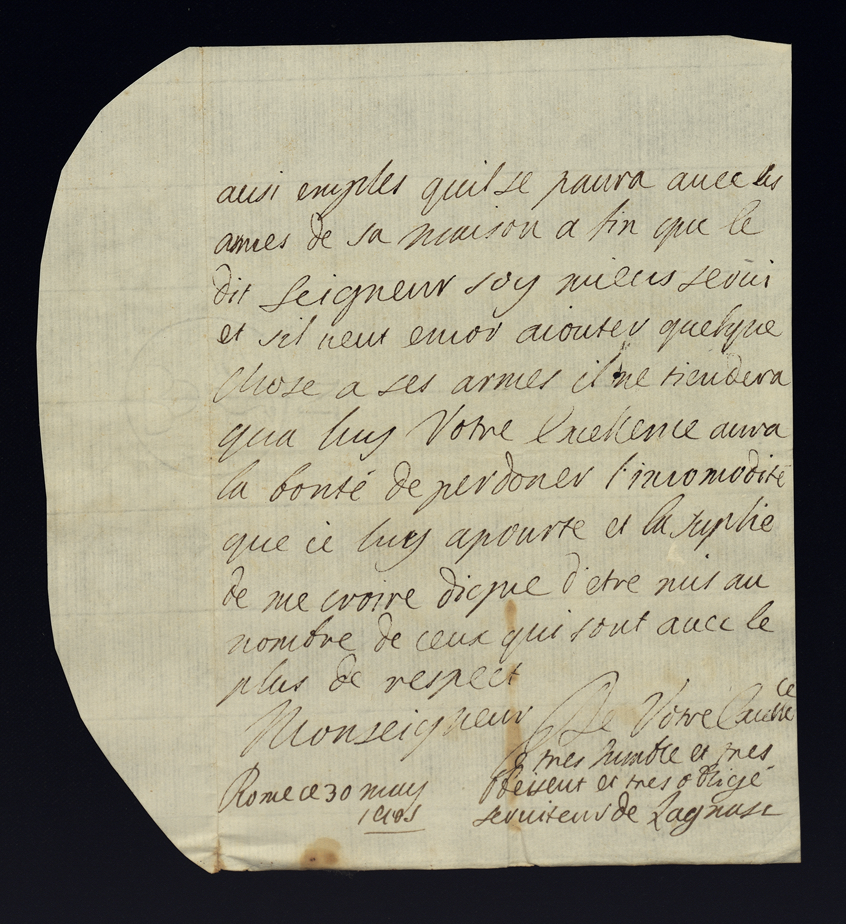 ausi emples quil se paura avec les
armes de sa maison a fin que le
dit seigneur soy mieus servi
et sil veut encor aiouter quelque
chose a ses armes il ne tiendera
qua luy Votre Excellence aura
la bonté de perdoner l'incomodité
que ie luy apourte et la suplie
de me croire digne d'etre mis au
nombre de ceux qui sont avec le
plus de respect
Monseigneur De Votre Excellce
tres humble et tres
Rome ce 30 may obeisent et tres obligé
serviteur de Lagnasc